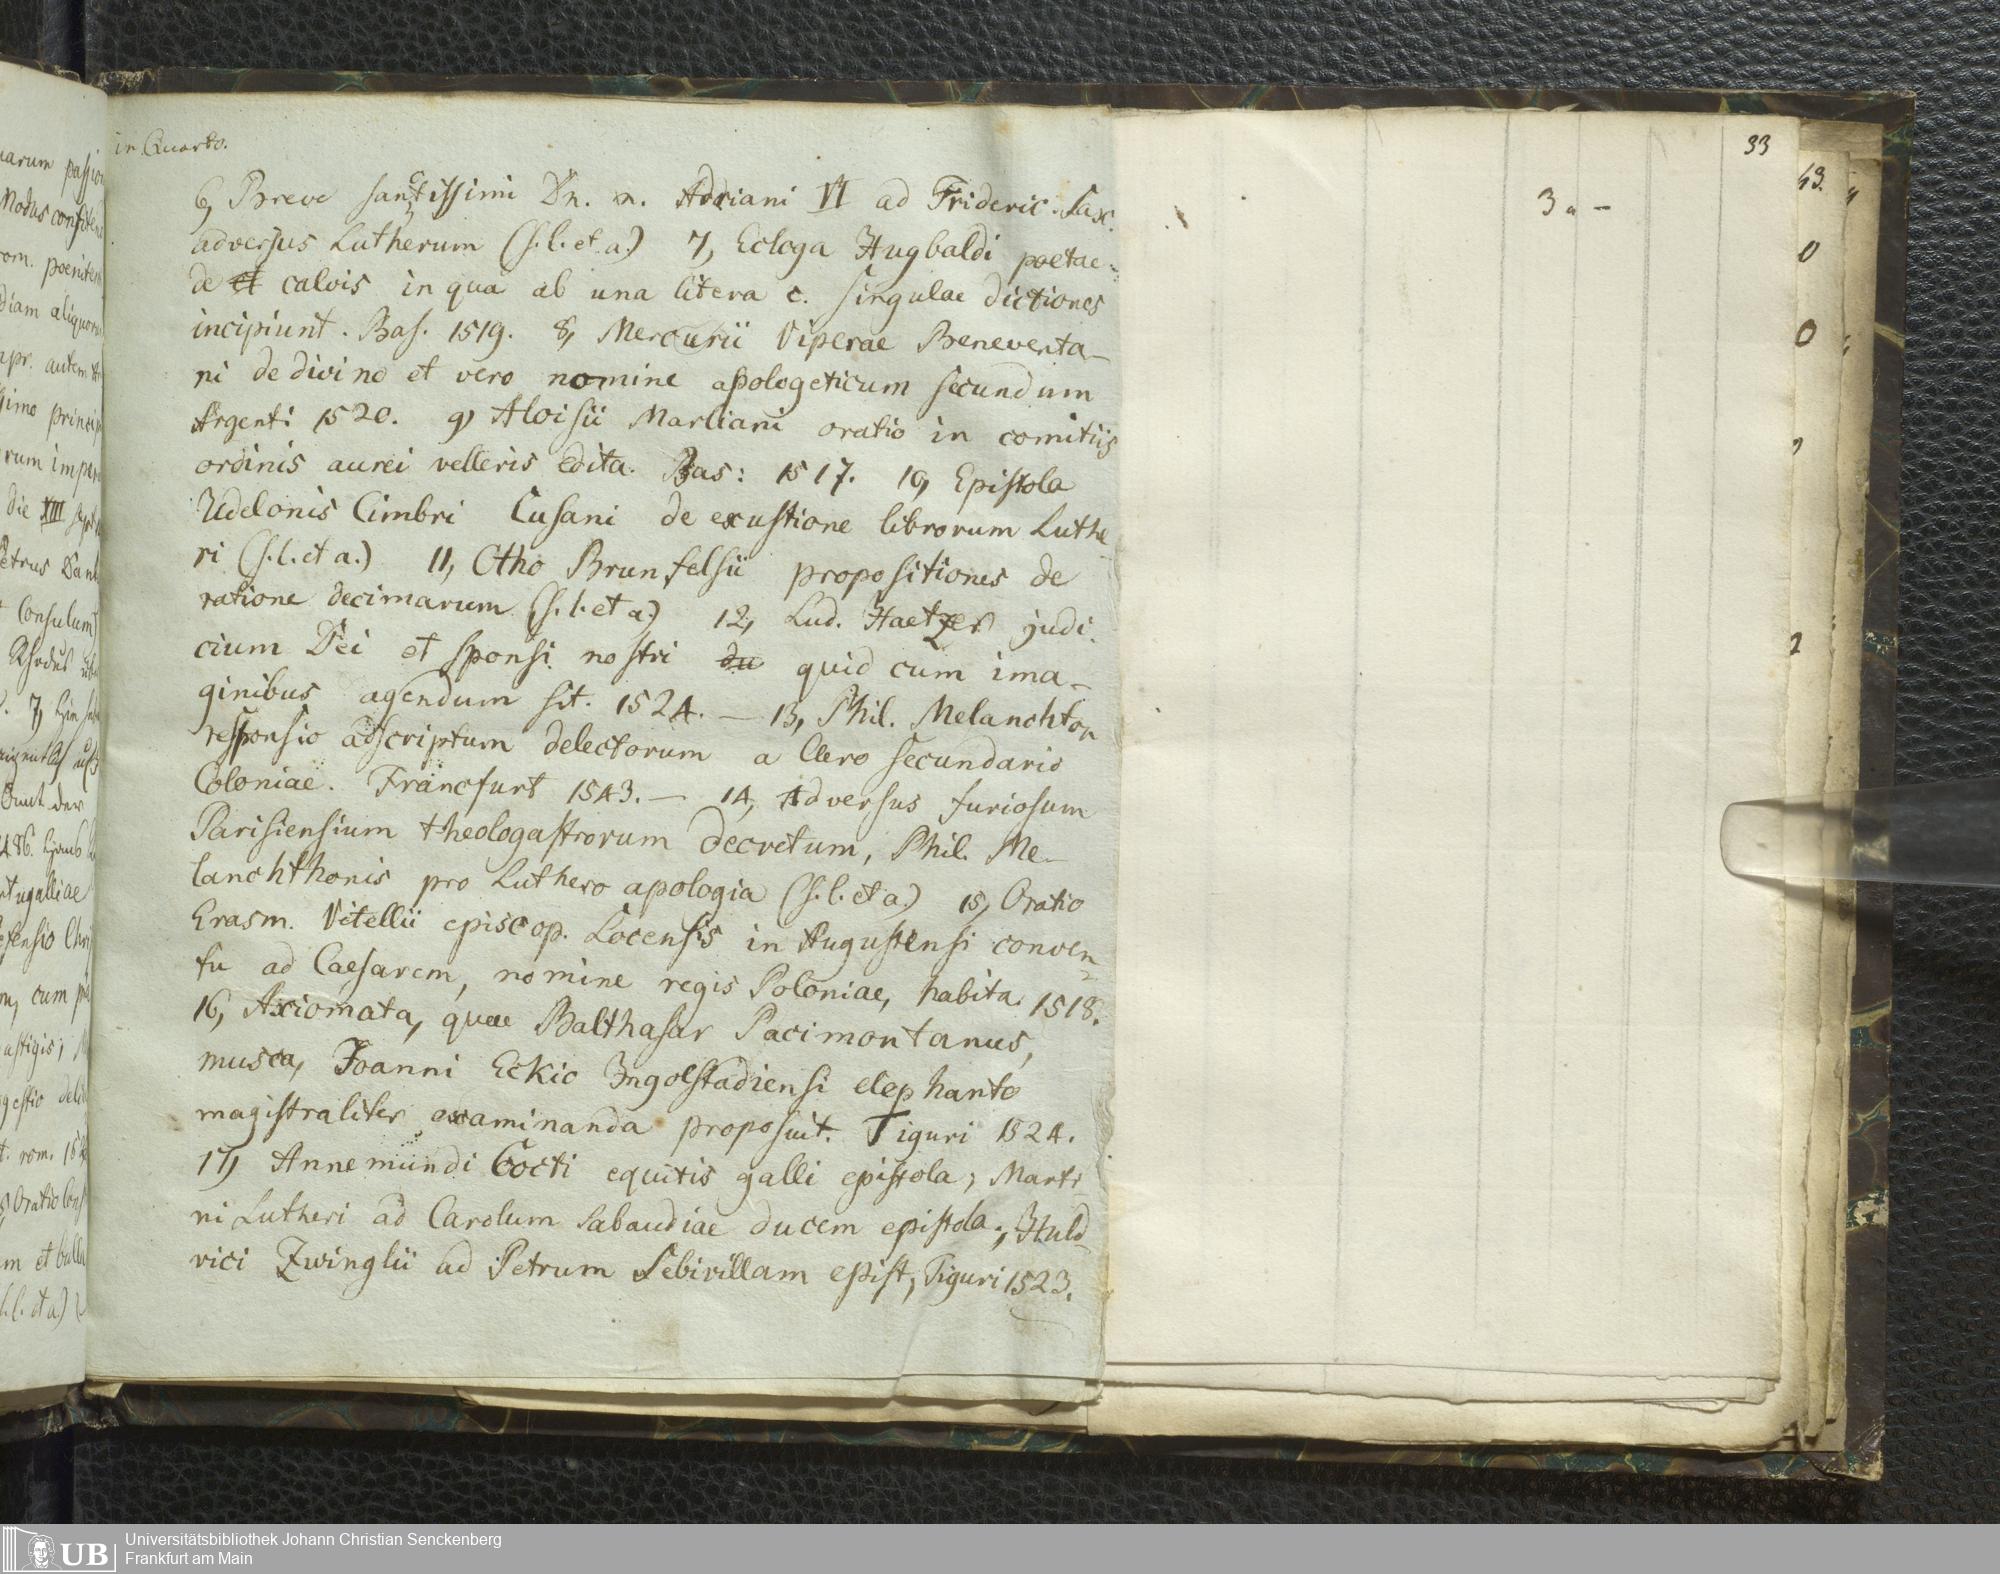 in Quarto.
33
6, Breve sanctissimi Dn. n. Adriani VI ad Frideric. Sax.
3 " -
adversus Lutherum (s. l. et a.) 7, Ecloga Hugbaldi poetae
de et calvis in qua ab una litera c. singulae dictiones
incipiunt. Bas. 1519. 8, Mercurii Viperae Beneventa-
ni de divino et vero nomine apologeticum secundum
Argent: 1520. 9, Aloisii Marliani oratio in comitiis
ordinis aurei velleris edita. Bas: 1517. 10, Epistola
Udelonis Cimbri Cusani de exustione librorum Luthe
ri (s. l. et a.) 11, Otho Brunfelsii propositiones de
ratione decimarum (s. l. et a.) 12, Lud. Haetzer judi-
cium Dei et sponsi nostri du quid cum ima-
ginibus agendum sit. 1524. — 13, Phil. Melanchton
responsio adscriptum delectorum a Clero secundario
Coloniae. Francfurt 1543. — 14, Adversus furiosum
Parisiensium theologastrorum decretum, Phil. Me-
lanchthonis pro Luthero apologia (s. l. et a.) 15, Oratio
Erasm. Vitellii episcop. Locensis in Augustensi conven-
tu ad Caesarem, nomine regis Poloniae, habita. 1518.
16, Axiomata, quae Balthasar Pacimontanus,
musca, Joanni Eckio Ingolstadiensi elephanto
magistraliter examinanda proposuit. Tiguri 1524.
17, Annemundi Cocti equitis galli epistola, Marti
ni Lutheri ad Carolum Sabaudiae ducem epistola; Huld-
rici Zwinglii ad Petrum Sebivillam epist, Tiguri 1523.
UB Universitätsbibliothek Johann Christian Senckenberg
Frankfurt am Main